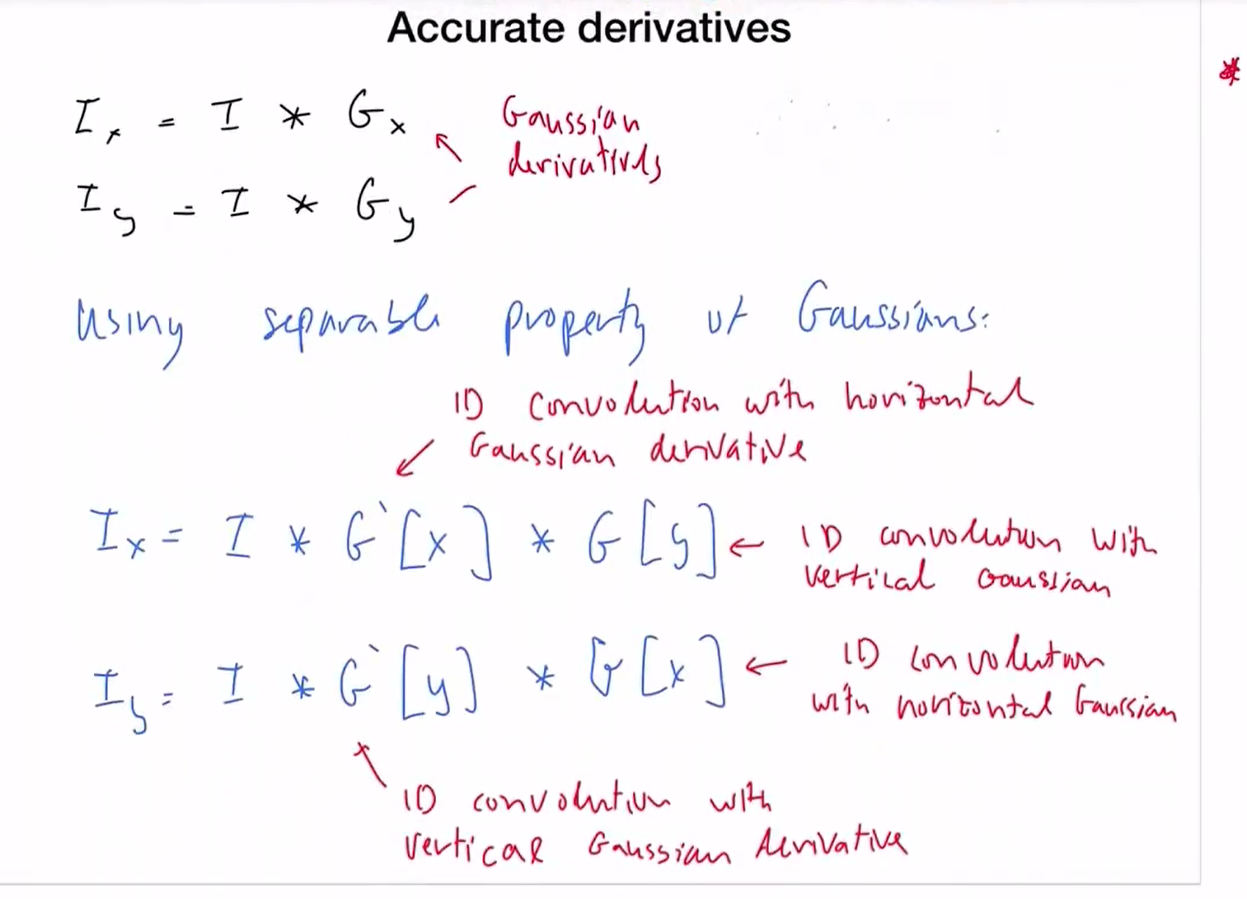 Accurate derivatives
*
I_x = I * G_x
Gaussian
derivatives
I_y = I * G_y
Using separable property of Gaussians:
1D convolution with horizontal
Gaussian derivative
I_x = I * G`[x] * G[y] ← 1D convolution with
vertical Gaussian
I_y = I * G`[y] * G[x] ← 1D convolution
with horizontal Gaussian
1D convolution with
vertical Gaussian derivative